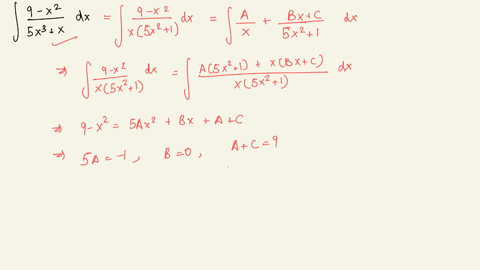 ∫ (9 - x²)/(5x³ + x) dx = ∫ (9 - x²)/(x(5x²+1)) dx = ∫ A/x + (Bx + C)/(5x² + 1) dx
⇒ ∫ (9 - x²)/(x(5x²+1)) dx = ∫ (A(5x²+1) + x(Bx + C))/(x(5x²+1)) dx
⇒ 9 - x² = 5Ax² + Bx + A + C
⇒ 5A = -1, B = 0, A + C = 9